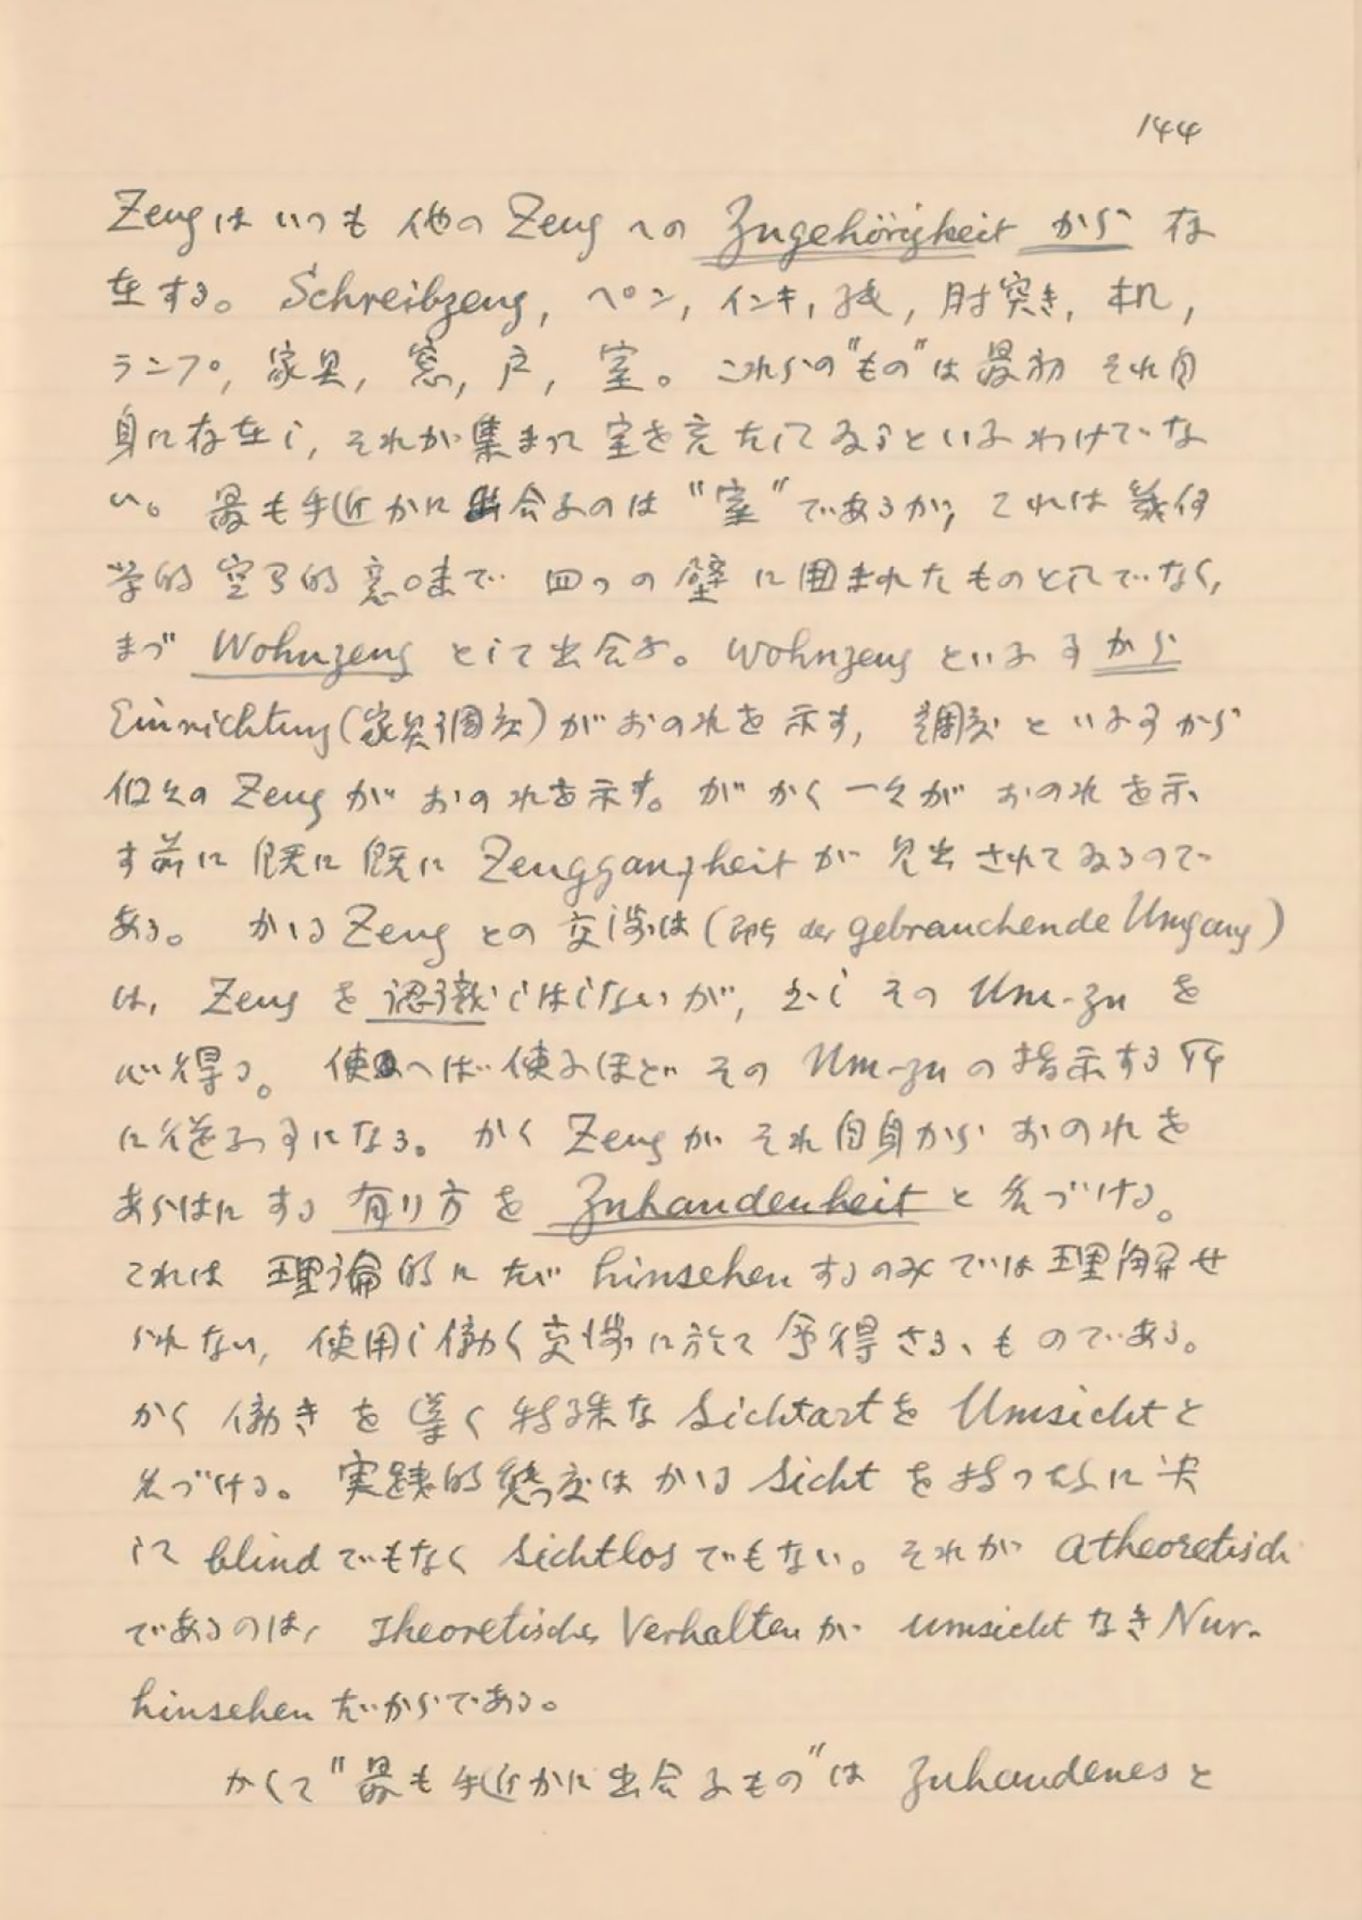 144
Zeugはいつも他のZeugへのZugehörigkeitから存
在する。Schreibzeug, ペン, インキ, 紙, 肘突き, 机,
ランプ, 家具, 窓, 戸, 室。これらの"もの"は最初それ自
身に存在し, それが集まって室を充たしてゐるといふわけでな
い。最も手近かに出会ふのは"室"であるが, これは幾何
学的空間的意味で四つの壁に囲まれたものとしてでなく,
まづWohnzeugとして出会ふ。Wohnzeugといふ事から
Einrichtung(家具調度)がおのれを示す, 調度といふ事から
個々のZeugがおのれを示す。がかく一々がおのれを示
す前に既に既にZeugganzheitが見出されてゐるので
ある。かゝるZeugとの交渉は(即ちder gebrauchende Umgang)
は, Zeugを認識しはしないが, 然しそのUm-zuを
心得る。使へば使ふほどそのUm-zuの指示する所
に従ふ事になる。かくZeugがそれ自身からおのれを
あらはにする有り方をZuhandenheitと名づける。
これは理論的にたゞhinsehenするのみでは理解せ
られない, 使用し働く交渉に於て会得さるゝものである。
かく働きを導く特殊なSichtartをUmsichtと
名づける。実践的態度はかゝるSichtを持つ故に決
してblindでもなくsichtlosでもない。それがatheoretisch
であるのは, theoretisches Verhaltenがumsichtなき Nur-
hinsehenだからである。
かくて"最も手近かに出会ふもの"はZuhandenesと